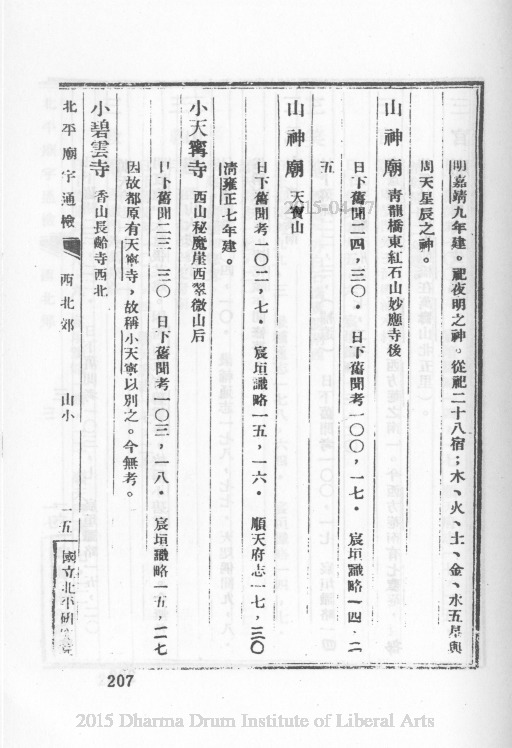 明嘉靖九年建。祀夜明之神。從祀二十八宿；木、火、土、金、水五星與
周天星辰之神。
山神廟 靑龍橋東紅石山妙應寺後
日下舊聞二四，三〇 日下舊聞考一〇〇，一七． 宸垣識略一四．二
五
山神廟 天寶山
日下舊聞考一〇二，七． 宸垣識略一五，一六． 順天府志一七，三〇
淸雍正七年建。
小天寗寺 西山秘魔崖西翠微山后
日下舊聞二三，三〇 日下舊聞考一〇三，一八． 宸垣識略一五，二七
因故都原有天寗寺，故稱小天寗以別之。今無考。
小碧雲寺 香山長齡寺西北
北平廟宇通檢 西北郊 山小 一五 國立北平研究
207
2015 Dharma Drum Institute of Liberal Arts